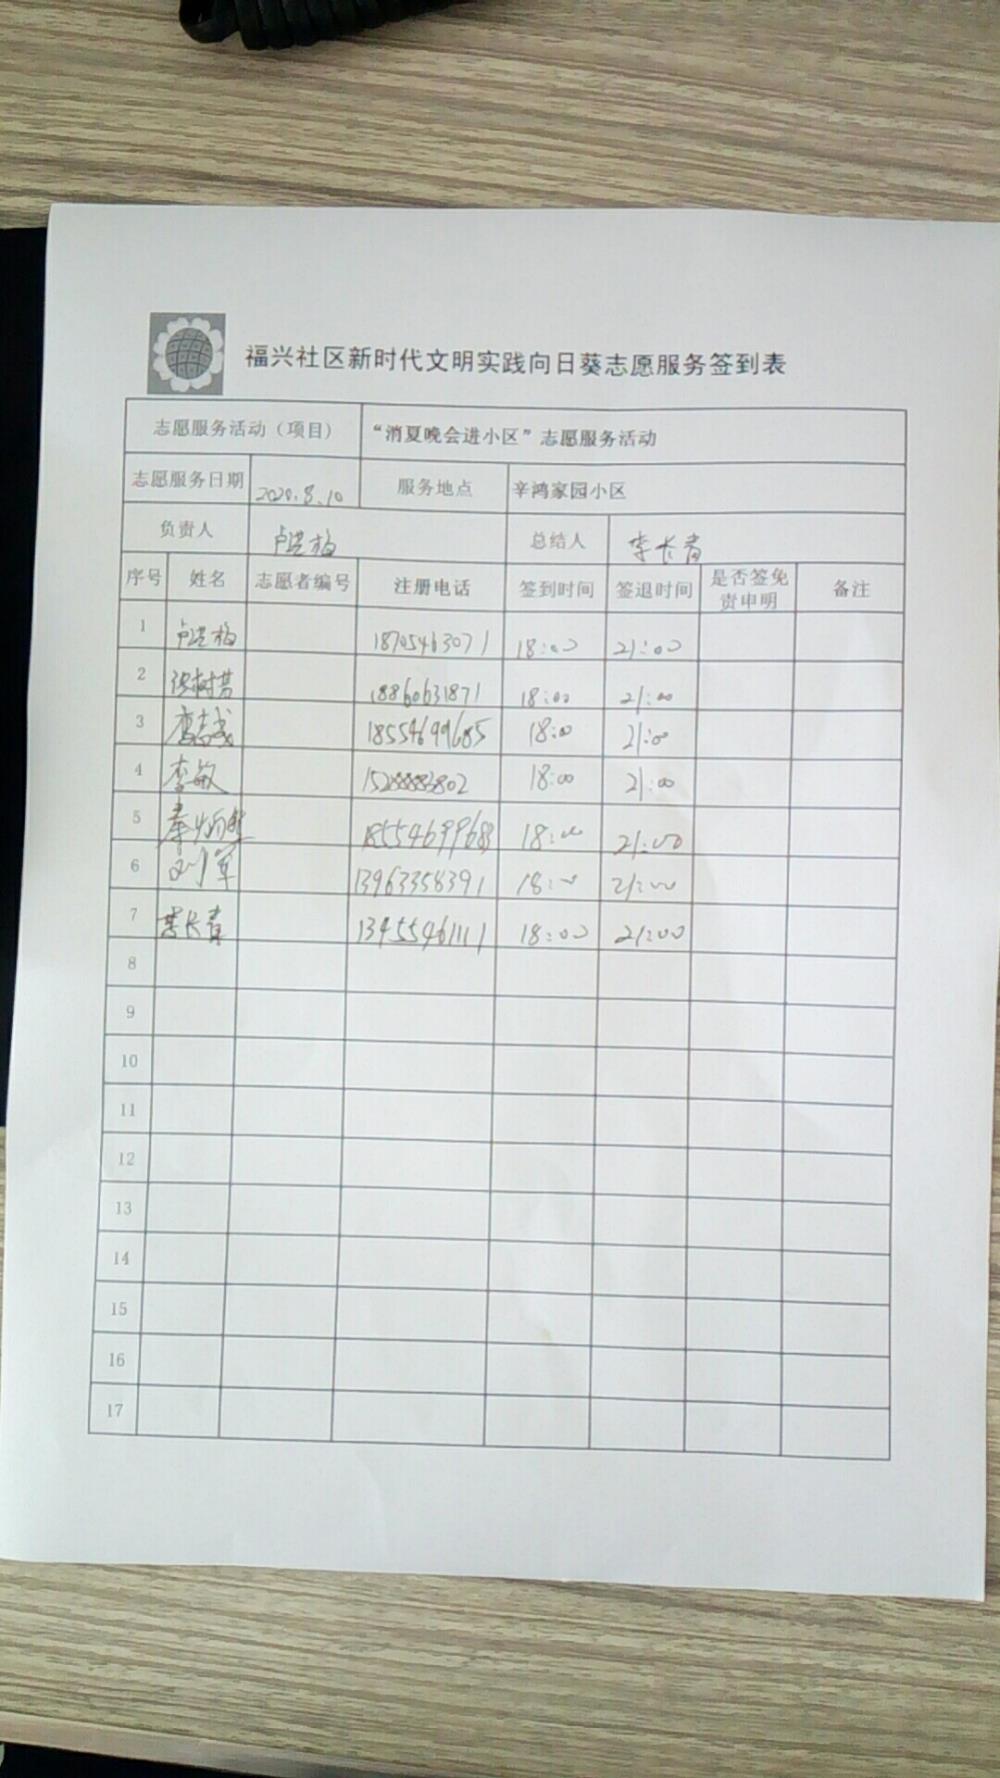 福兴社区新时代文明实践向日葵志愿服务签到表
志愿服务活动（项目） “消夏晚会进小区”志愿服务活动
志愿服务日期 2020.8.10 服务地点 辛鸿家园小区
负责人 卢洪梅 总结人 李长青
序号 姓名 志愿者编号 注册电话 签到时间 签退时间 是否签免责申明 备注
1 卢洪梅 18705463071 18:00 21:00
2 18860631871 18:00 21:00
3 18554699685 18:00 21:00
4 李敏 18:00 21:00
5 18554699683 18:00 21:00
6 刘军 13963358391 18:00 21:00
7 李长青 13455461111 18:00 21:00
8
9
10
11
12
13
14
15
16
17